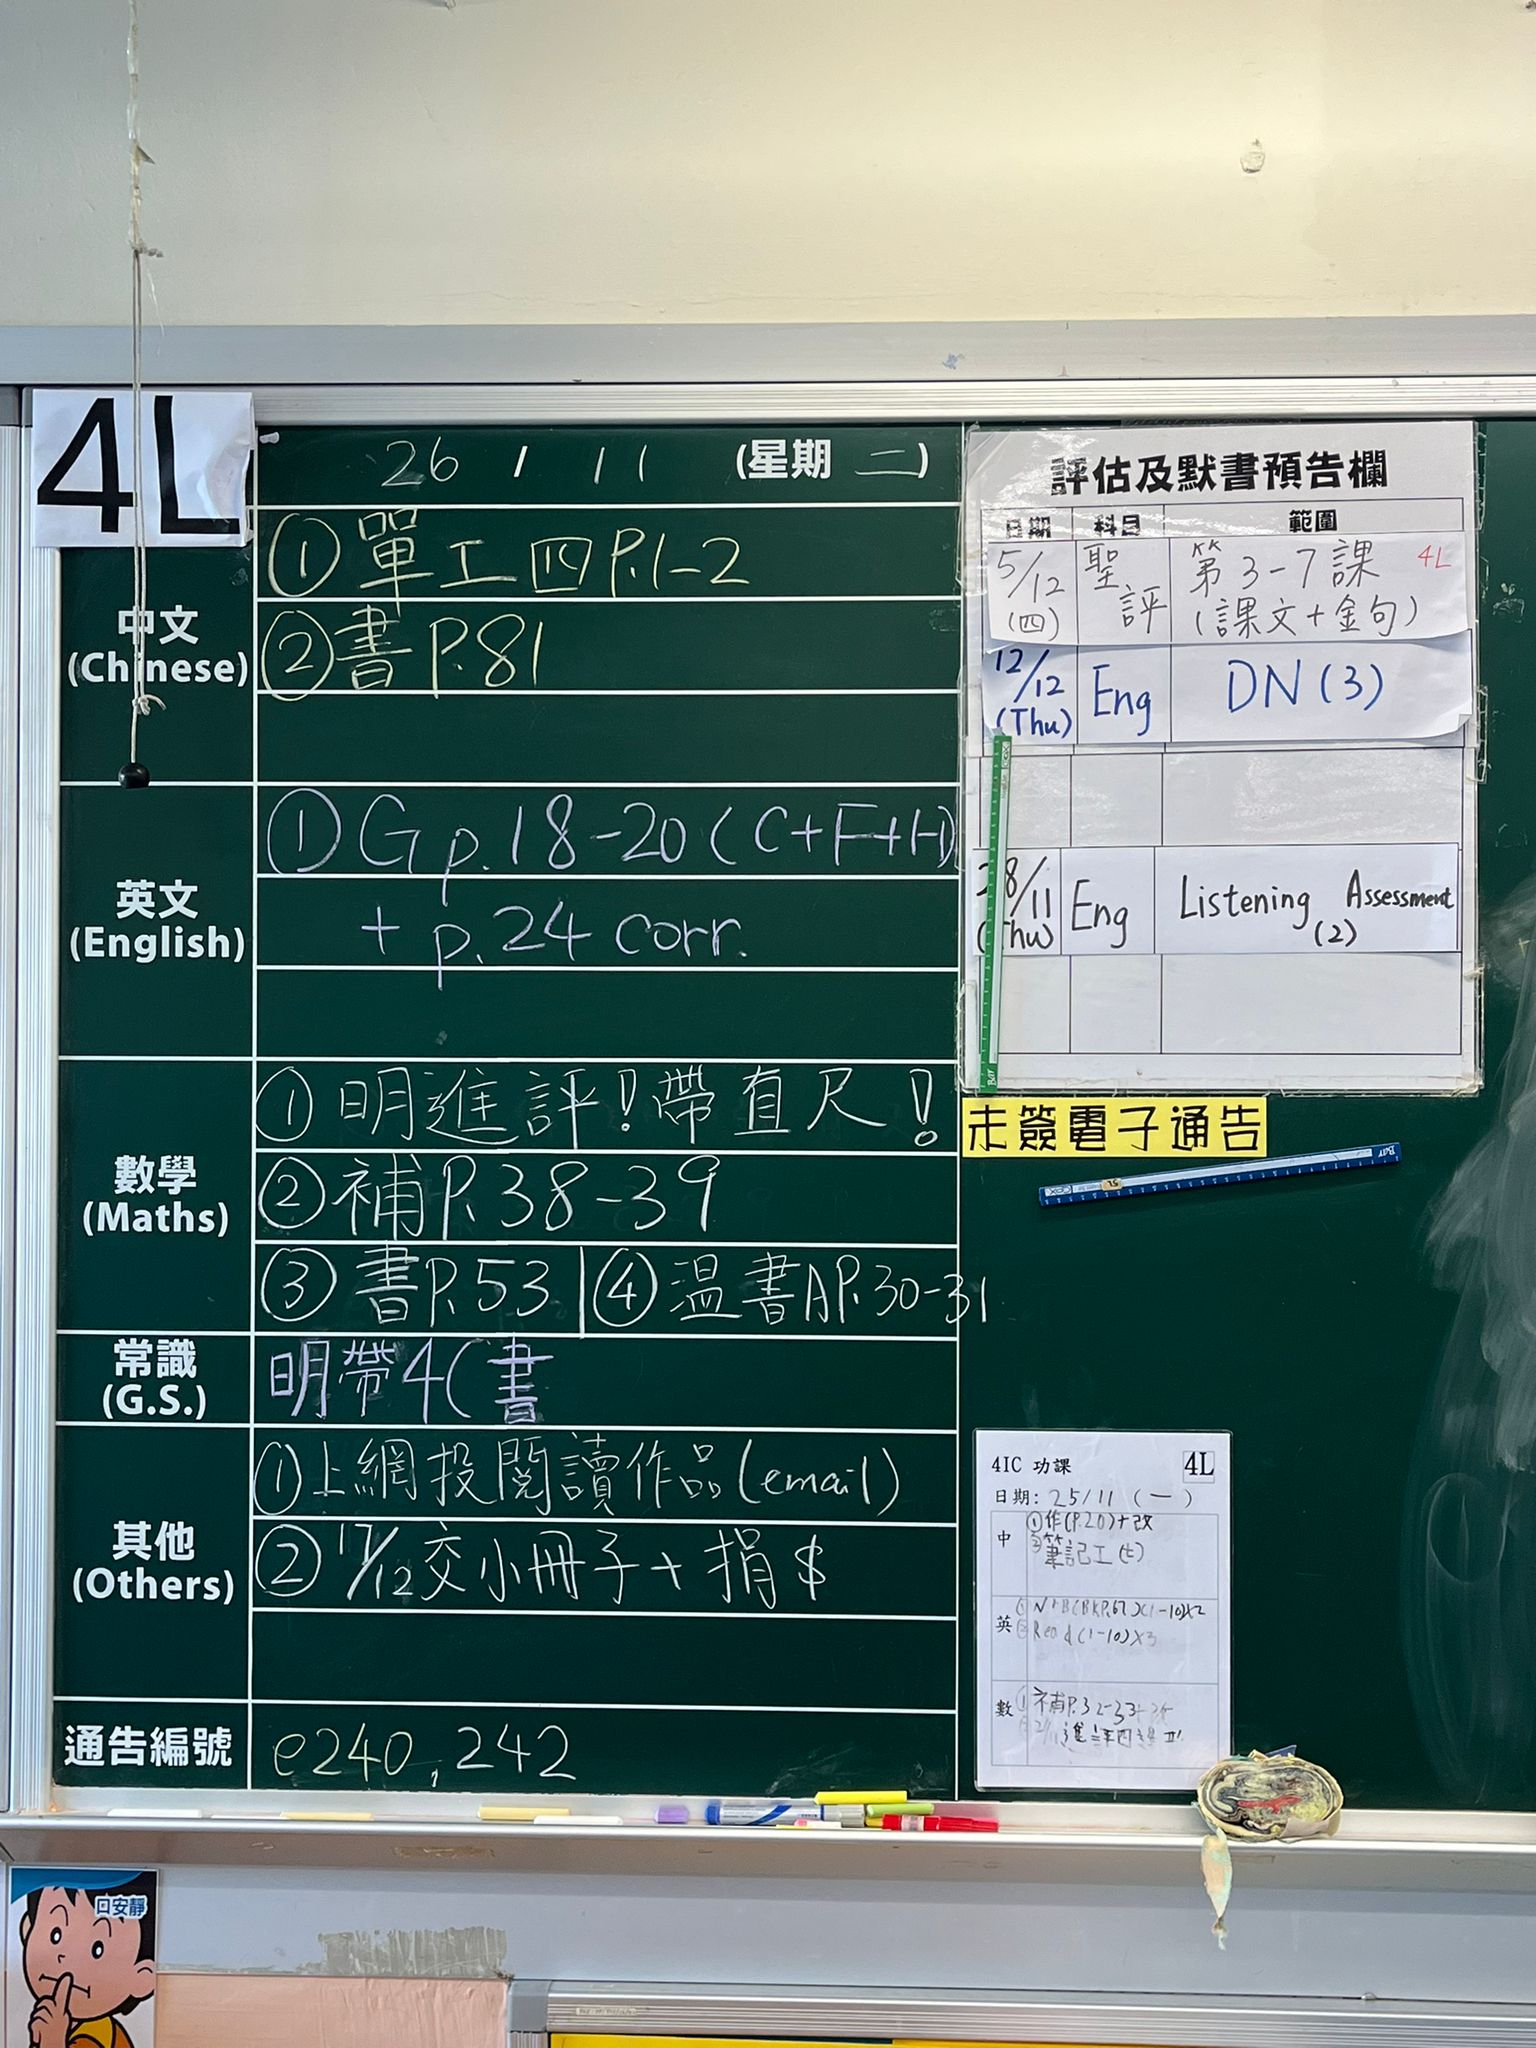 4L
26 / 11 (星期 二)
中文
(Chinese)
① 單工四P.1-2
② 書P.81
英文
(English)
① G p.18-20 (C+F+H)
+ p.24 corr.
數學
(Maths)
① 明進評!帶直尺!
② 補P.38-39
③ 書P.53 | ④ 溫書AP.30-31
常識
(G.S.)
明帶4C書
其他
(Others)
① 上網投閱讀作品(email)
② 17/12交小冊子+捐$
通告編號
e240,242
評估及默書預告欄
日期 科目 範圍
5/12 (四) 聖評 第3-7課 (課文+金句) 4L
12/12 (Thu) Eng DN (3)
28/11 (Thu) Eng Listening Assessment (2)
未簽電子通告
4IC 功課 4L
日期: 25/11 (一)
中
①作(P.20)+改
②筆記工(七)
英
(1-10)X2
Read(1-10)X3
數
① 補P.32-33+
口安靜